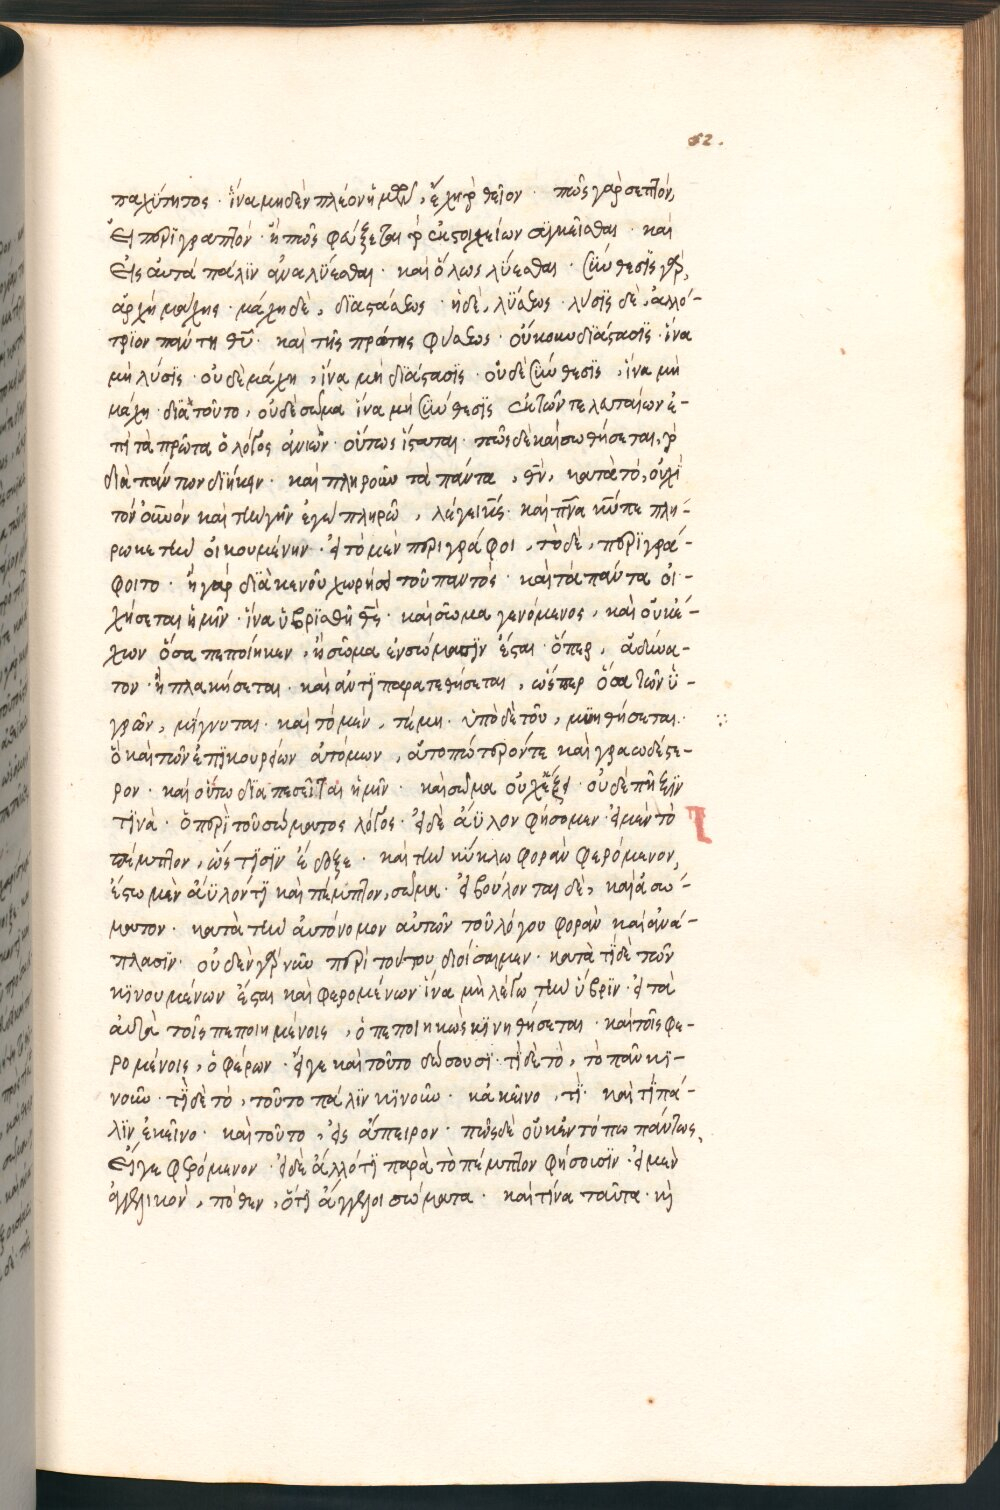 52.
παχύτητος · ἵνα μηδὲν πλέον ἡμῶν, ἔχῃ τὸ θεῖον · πῶς γὰρ σεπτὸν,
εἰ περιγραπτόν · ἢ πῶς φεύξεται τὸ ἐκ στοιχείων συγκεῖσθαι · καὶ
εἰς αὐτὰ πάλϊν ἀναλύεσθαι · καὶ ὅλως λύεσθαι · σύνθεσϊς γὰρ,
ἀρχὴ μάχης · μάχη δὲ, διαστάσεως · ἡ δὲ, λύσεως · λύσϊς δὲ, ἀλλό-
τριον πάντη θῦ · καὶ τῆς πρώτης φύσεως · οὔκουν διάστασϊς · ἵνα
μὴ λύσϊς · οὐδὲ μάχη, ἵνα μὴ διάστασϊς · οὐδὲ σύνθεσϊς, ἵνα μὴ
μάχη · διὰ τοῦτο, οὐδὲ σῶμα ἵνα μὴ σύνθεσϊς ἐκ τῶν τελευταίων ἐ-
πὶ τὰ πρῶτα ὁ λόγος ἀνιὼν · οὕτως ἵσταται · πῶς δὲ καὶ σωθήσεται, τὸ
διὰ πάντων διήκειν · καὶ πληροῦν τὰ πάντα, θν̄, κατὰ τό, οὐχὶ
τὸν οὐνὸν καὶ τὴν γῆν ἐγὼ πληρῶ, λέγει κς̄ · καὶ πν̄α κῡ πεπλή-
ρωκε τὴν οἰκουμένην · εἰ τὸ μὲν περιγράφοι, τὸ δὲ, περϊγρά-
φοιτο · ἢ γὰρ διὰ κενοῦ χωρήσει τοῦ παντός · καὶ τὰ πάντα οἰ-
χήσεται ἡμῖν · ἵνα ὑβρϊσθῇ θς̄ · καὶ σῶμα γενόμενος, καὶ οὐκ ἔ-
χων ὅσα πεποίηκεν, ἢ σῶμα ἐν σώμασϊν ἔσται · ὅπερ, ἀδύνα-
τον · ἢ πλακήσεται · καὶ ἀντιπαρατεθήσεται, ὥσπερ ὅσα τῶν ὑ-
γρῶν, μίγνυται · καὶ τὸ μὲν, τέμῃ · ὑπὸ δὲ τοῦ, τμηθήσεται ·
ὃ καὶ τῶν ἐπϊκουρείων ἀτόμων, ἀτοπώτερόν τε καὶ γραωδέστε-
ρον · καὶ οὕτω διαπεσεῖται ἡμῖν · καὶ σῶμα οὐχ ἕξει · οὐδὲ πῆξϊν
τϊνὰ · ὁ περὶ τοῦ σώματος λόγος · εἰ δὲ ἄϋλον φήσομεν · εἰ μὲν τὸ
πέμπτον, ὥς τισϊν ἔδοξε · καὶ τὴν κύκλω φορὰν φερόμενον,
ἔστω μὲν ἄϋλόν τι καὶ πέμπτον, σῶμα · εἰ βούλονται δὲ, καὶ ἀσώ-
ματον · κατὰ τὴν αὐτόνομον αὐτῶν τοῦ λόγου φορὰν καὶ ἀνά-
πλασϊν · οὐδὲν γὰρ νῦν περὶ τούτου διοίσομεν · κατὰ τί δὲ τῶν
κϊνουμένων ἔσται καὶ φερομένων · ἵνα μὴ λέγω τὴν ὕβρϊν · εἰ τὰ
αὐτὰ τοῖς πεποιημένοις, ὁ πεποιηκὼς κϊνηθήσεται · καὶ τοῖς φε-
ρομένοις, ὁ φέρων · εἴγε καὶ τοῦτο δώσουσϊ · τί δὲ τὸ, τὸ πᾶν κϊ-
νοῦν · τί δὲ τὸ, τοῦτο πάλϊν κϊνοῦν · κἀκεῖνο, τί · καὶ τί πά-
λϊν ἐκεῖνο · καὶ τοῦτο, εἰς ἄπειρον · πῶς δὲ οὐκ ἐν τόπω πάντως,
εἴγε φερόμενον · εἰ δὲ ἄλλό τι παρὰ τὸ πέμπτον φήσοισϊν · εἰ μὲν
ἀγγελικὸν, πόθεν, ὅτι ἄγγελοι σώματα · καὶ τίνα ταῦτα · κὴ